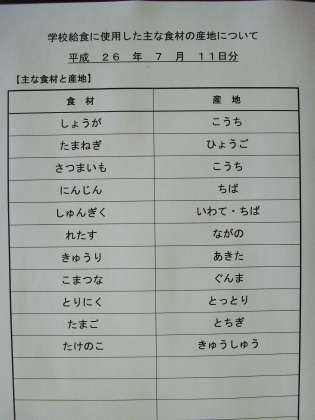 学校給食に使用した主な食材の産地について
平成 26 年 7 月 11日分
【主な食材と産地】
食 材 産 地
しょうが こうち
たまねぎ ひょうご
さつまいも こうち
にんじん ちば
しゅんぎく いわて・ちば
れたす ながの
きゅうり あきた
こまつな ぐんま
とりにく とっとり
たまご とちぎ
たけのこ きゅうしゅう